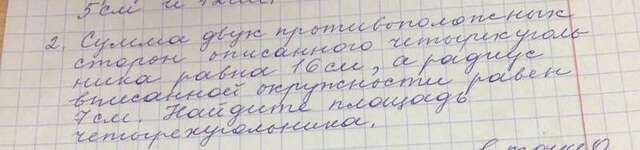 5см и
2. Сумма двух противоположных
сторон описанного четырехуголь
ника равна 16см, а радиус
вписанной окружности равен
7см. Найдите площадь
четырехугольника.
в точке О